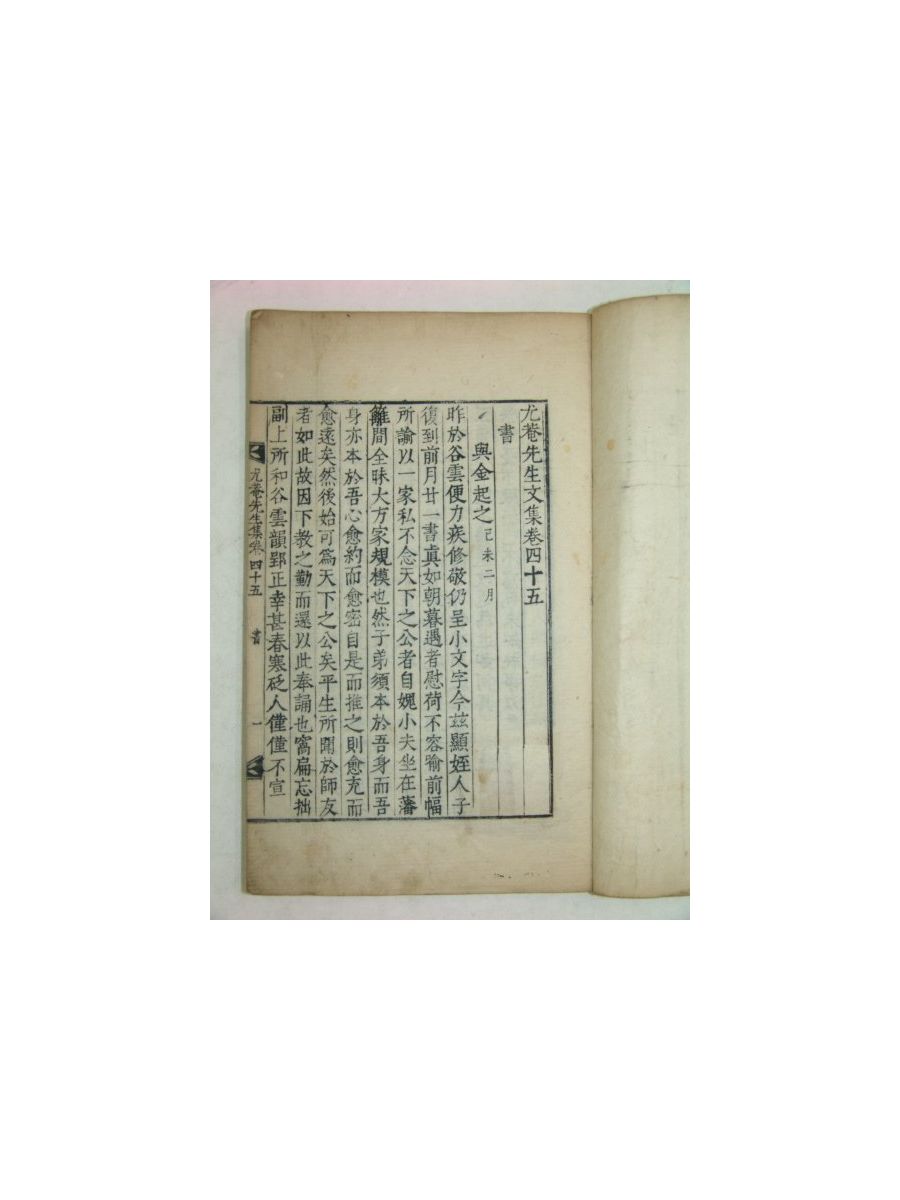 尤菴先生文集卷四十五
書
與金起之 己未二月
昨於谷雲便力疾修敬仍呈小文字今玆顯姪人子
復到前月廿一書眞如朝暮遇者慰荷不容喩前幅
所論以一家私不念天下之公者自媿小夫坐在藩
籬間全昧大方家規模也然子弟須本於吾身而吾
身亦本於吾心愈約而愈密自是而推之則愈充而
愈遠矣然後始可爲天下之公矣平生所聞於師友
者如此故因下敎之勤而還以此奉誦也窩扁忘拙
副上所和谷雲韻郢正幸甚春寒砭人僅僅不宣
尤菴先生集卷四十五 書 一